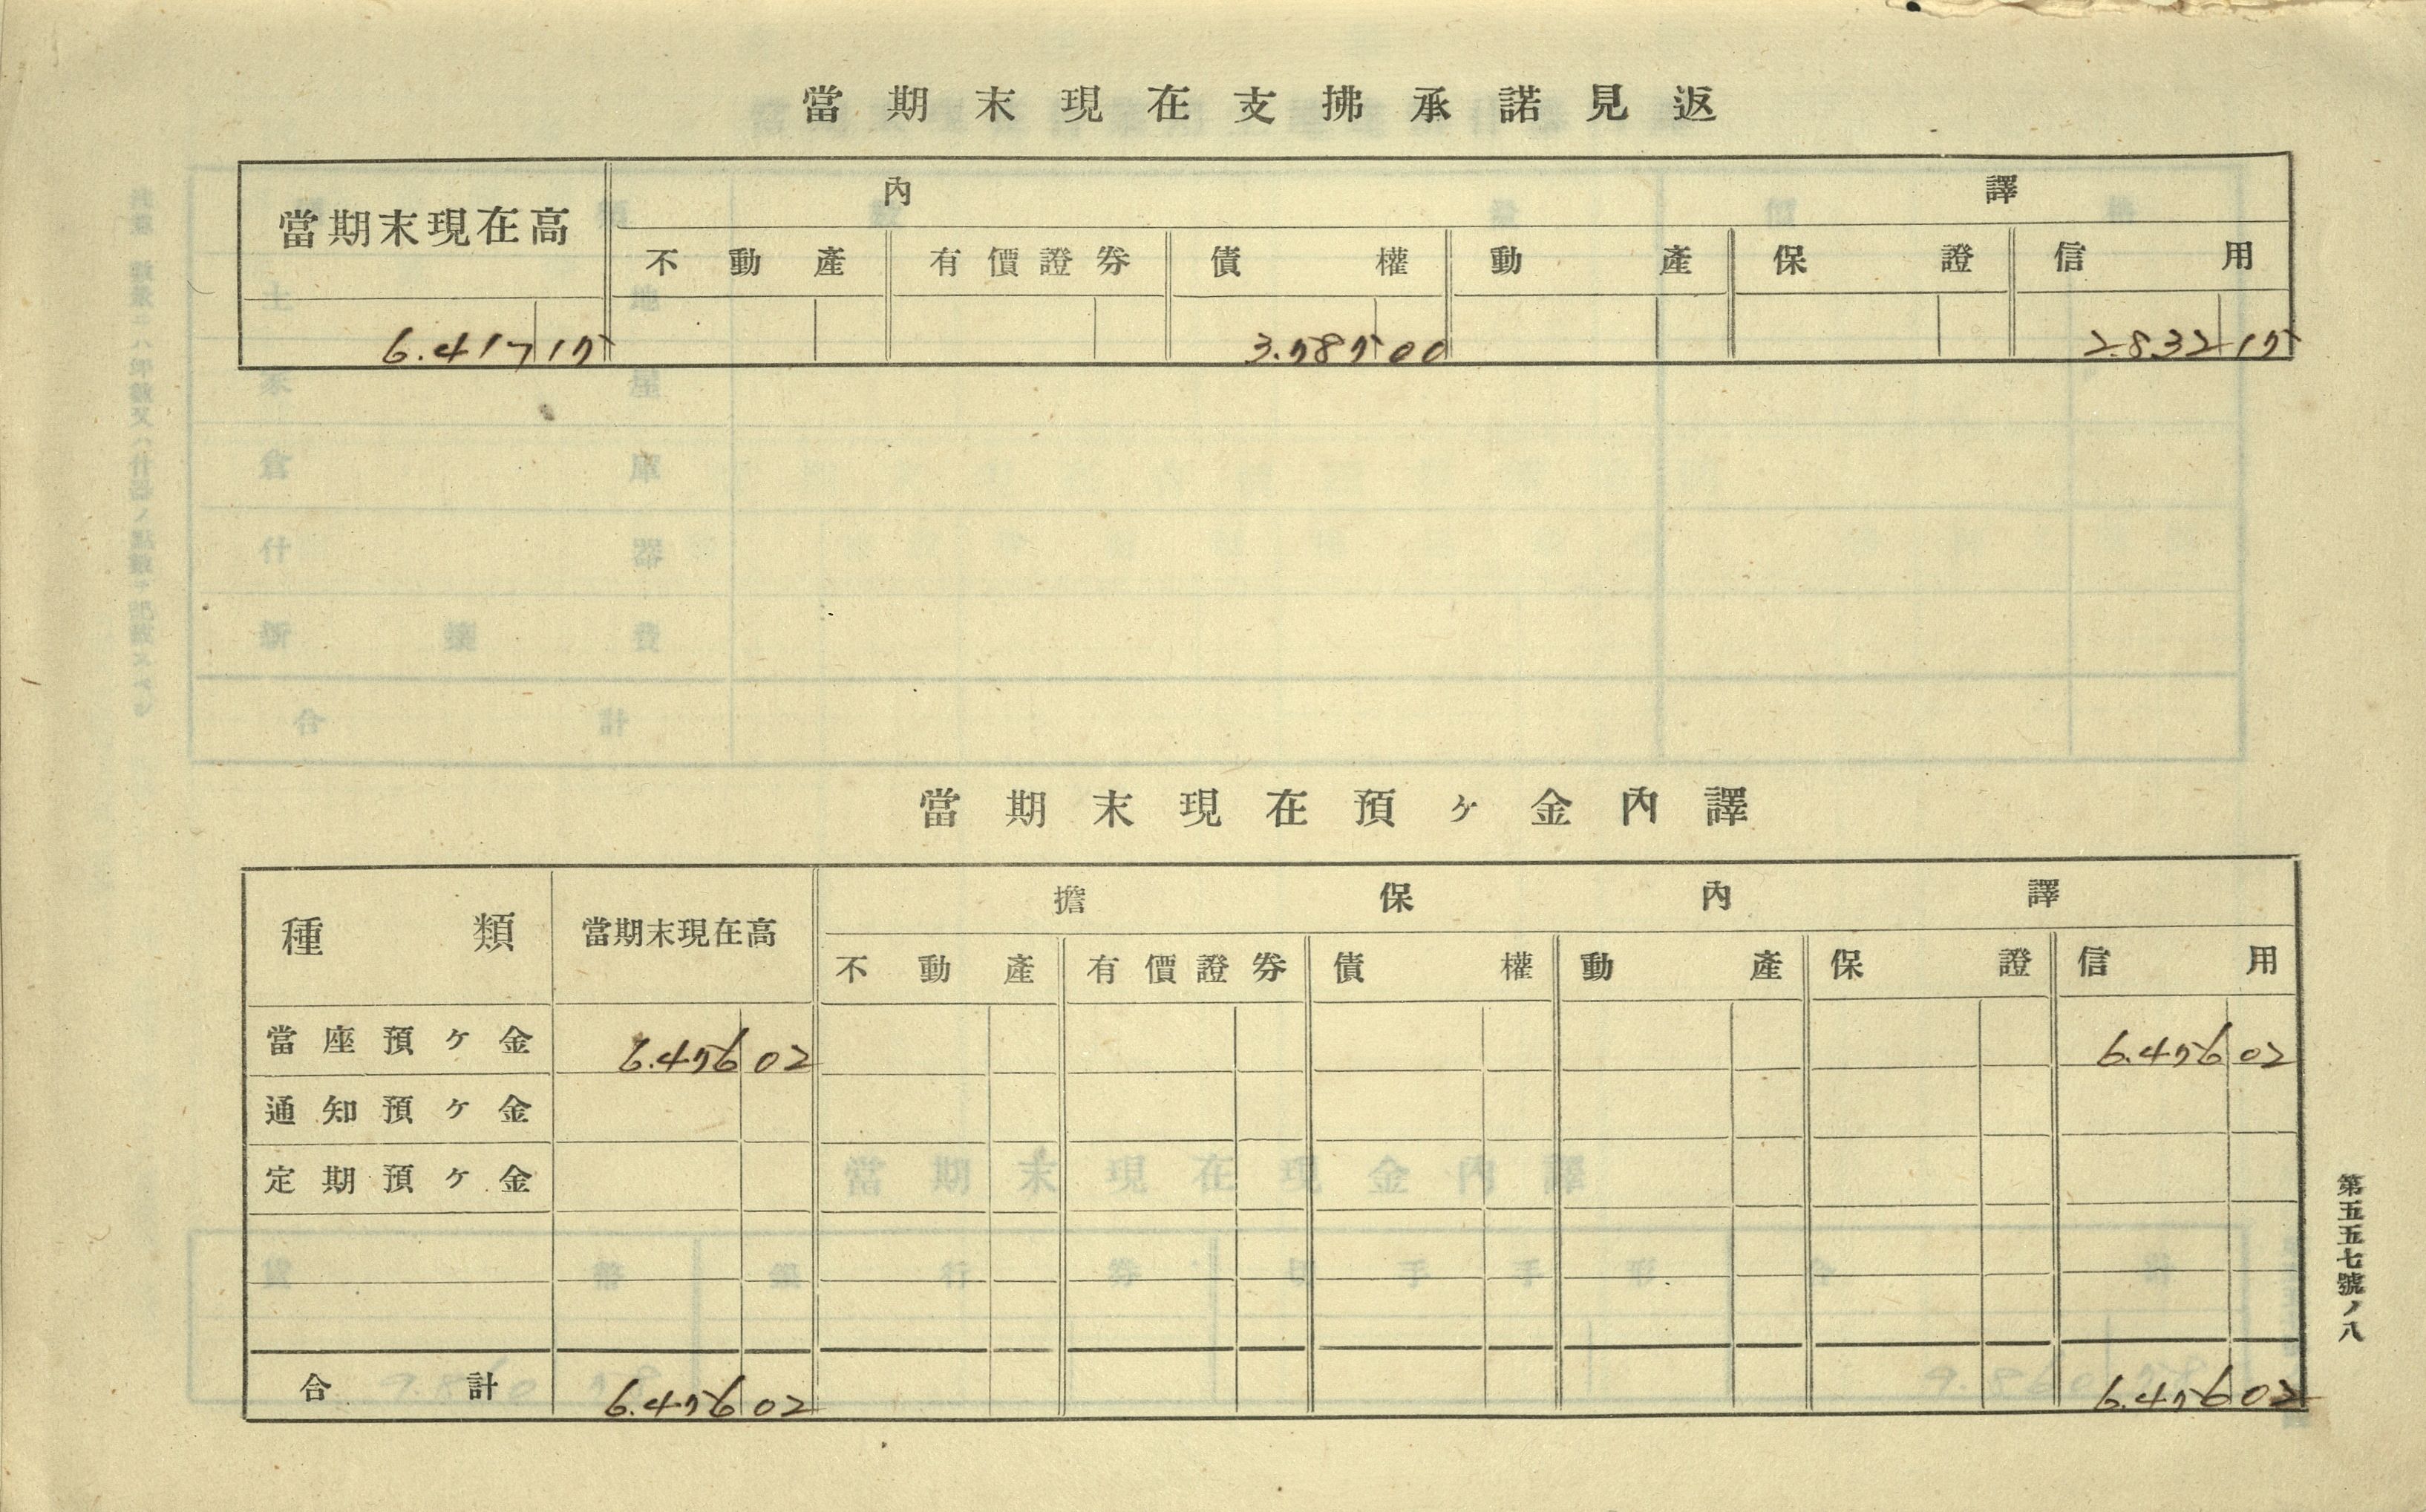 當期末現在支拂承諾見返
當期末現在高 內譯
不動產 有價證券 債權 動產 保證 信用
6.417 15 3.585 00 2.832 15
當期末現在預ヶ金內譯
種類 當期末現在高 擔保內譯
不動產 有價證券 債權 動產 保證 信用
當座預ヶ金 6.456 02 6.456 02
通知預ヶ金
定期預ヶ金
合計 6.456 02 6.456 02
第五五七號ノ八